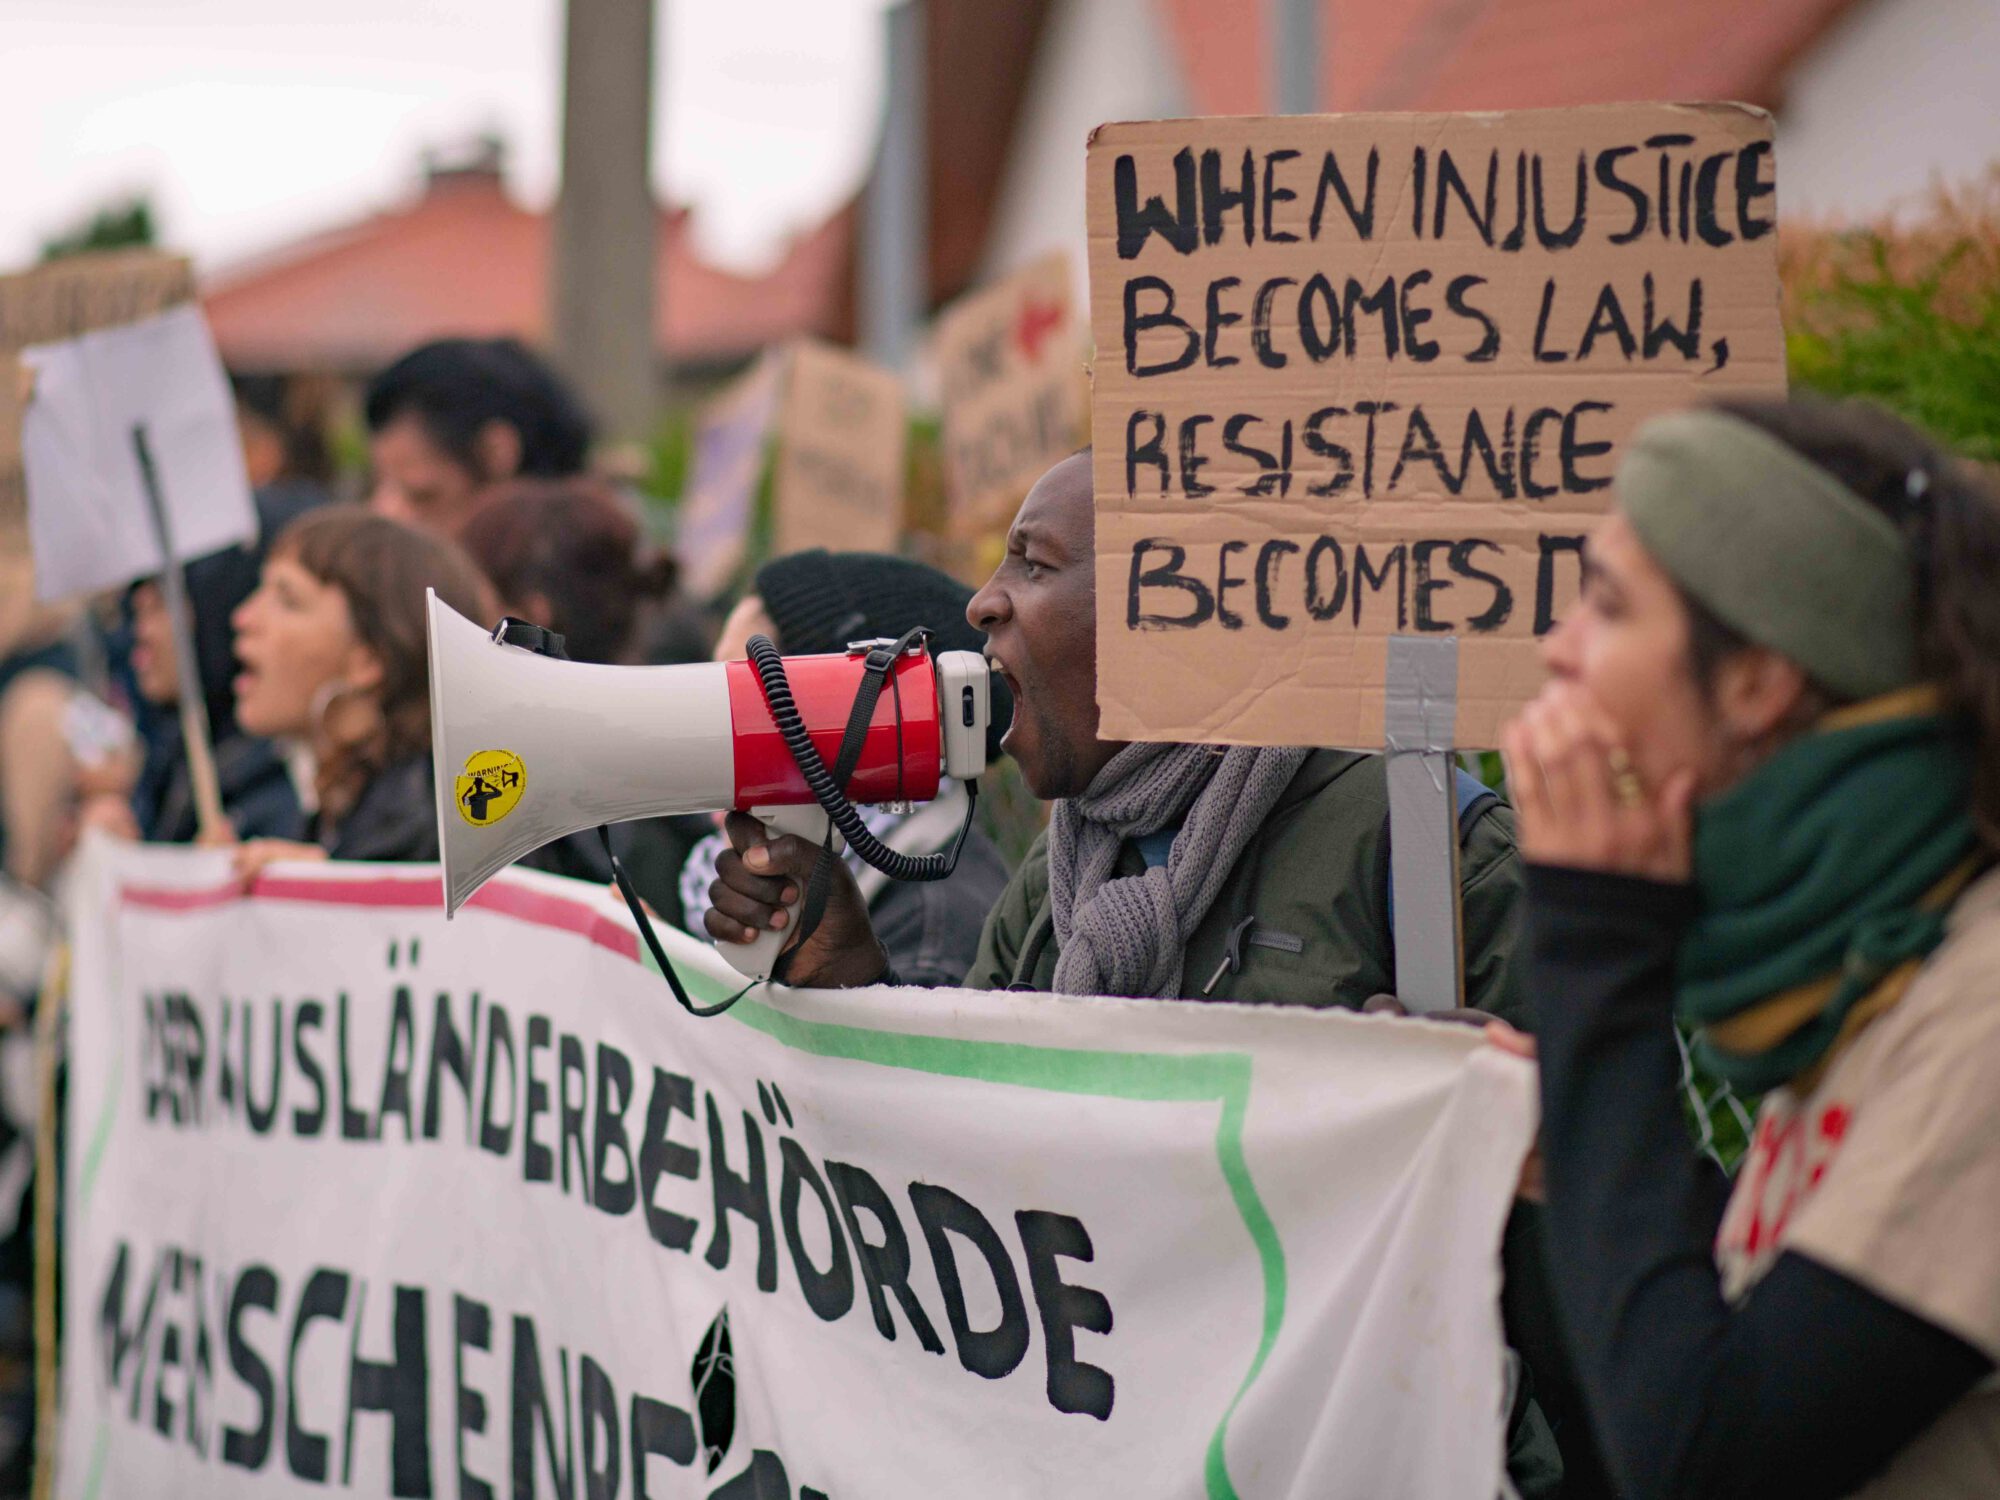 WHEN INJUSTICE
BECOMES LAW,
RESISTANCE
BECOMES D
WARNING!
DER AUSLÄNDERBEHÖRDE
MENSCHENRE